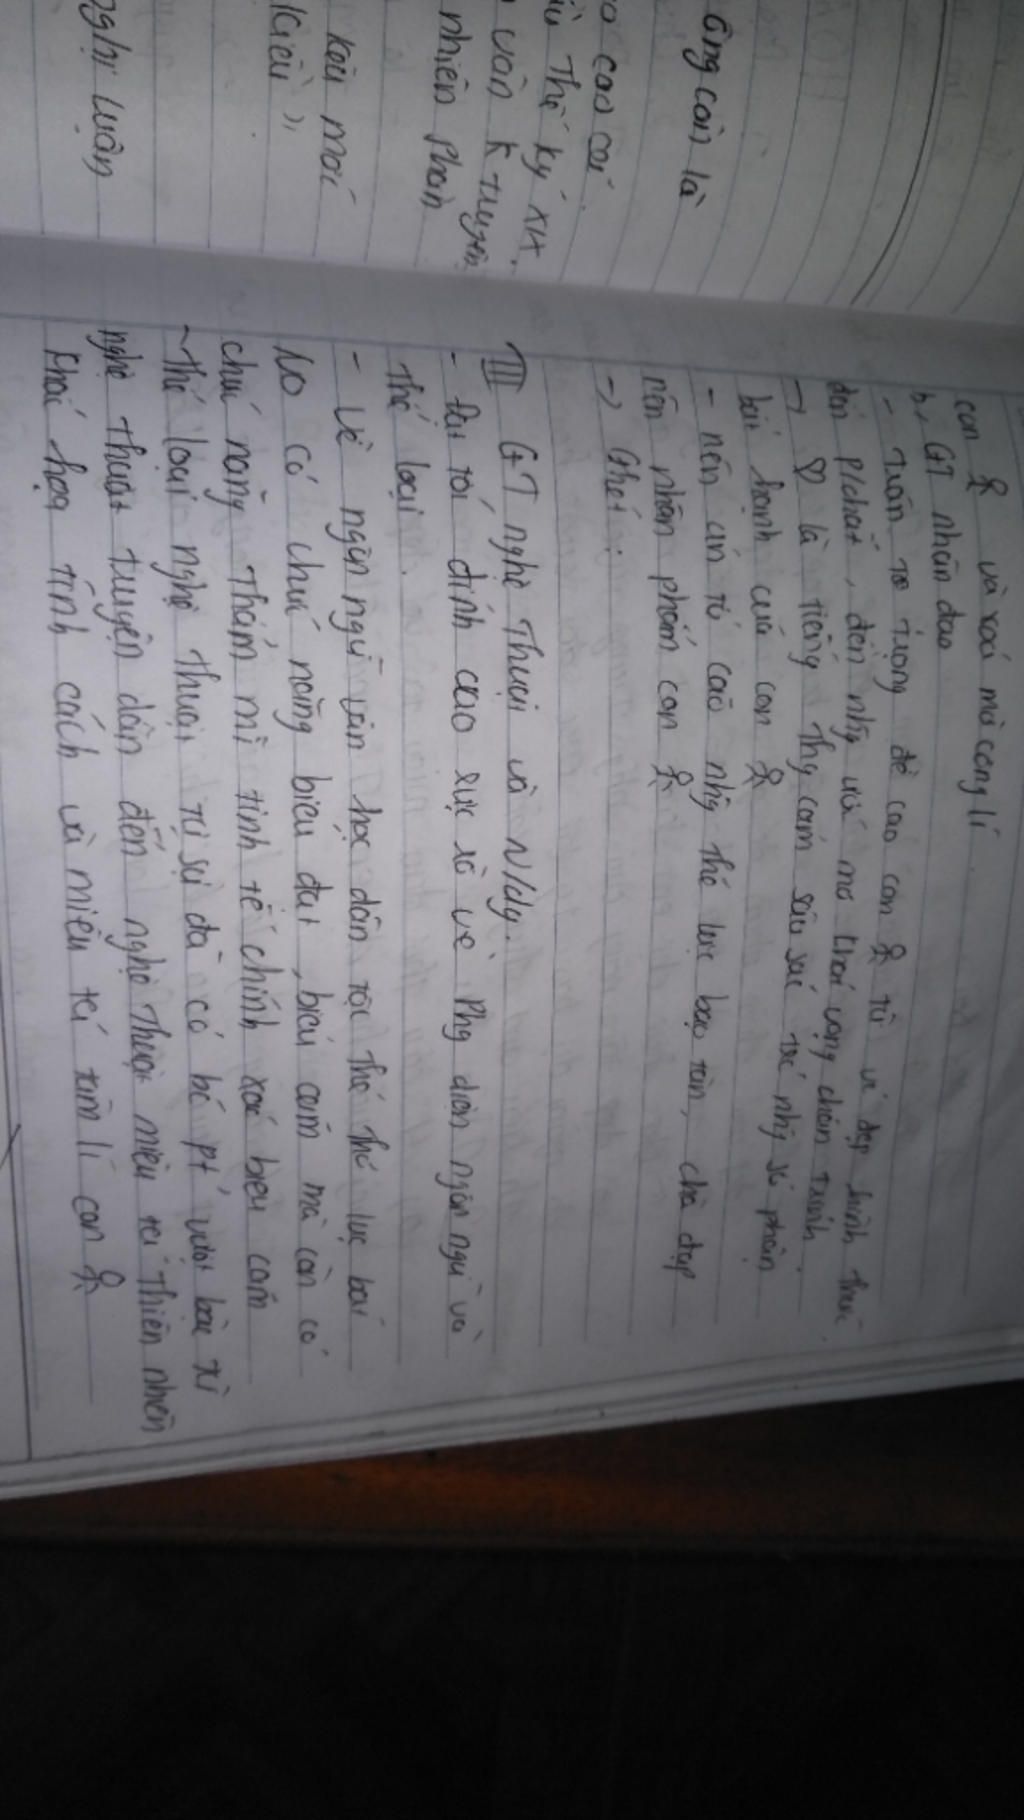 âng còn là
cao cả.
thế kỷ XIX.
văn k truyền
nhiên phản
kêu mới
Kiều),
nghị luận
con và xoá mờ công lí.
b, GT nhân đạo
- Trân trọng đề cao con từ vẻ đẹp hình thức.
đến p/chất, đến nhg ước mơ khát vọng chân chính.
→ là tiếng thg cảm sâu sắc trc nhg số phận
bất hạnh của con
- nên án tố cáo nhg thế lực bạo tàn, chà đạp
nên nhân phẩm con
→ Ghét.
III GT nghệ thuật và N/dg.
- đạt tới đỉnh cao rực rỡ về Phg diện ngôn ngữ và
thể loại.
- Về ngôn ngữ văn học dân tộc
có chức năng biểu đạt, biểu cảm mà còn có
chức năng thẩm mĩ tinh tế chính xác biểu cảm
- Thể loại nghệ thuật tự sự đã có bc pt vượt bậc từ
nghệ thuật truyện dẫn đến nghệ thuật miêu tả thiên nhiên
khắc hoạ tính cách và miêu tả tâm lí con